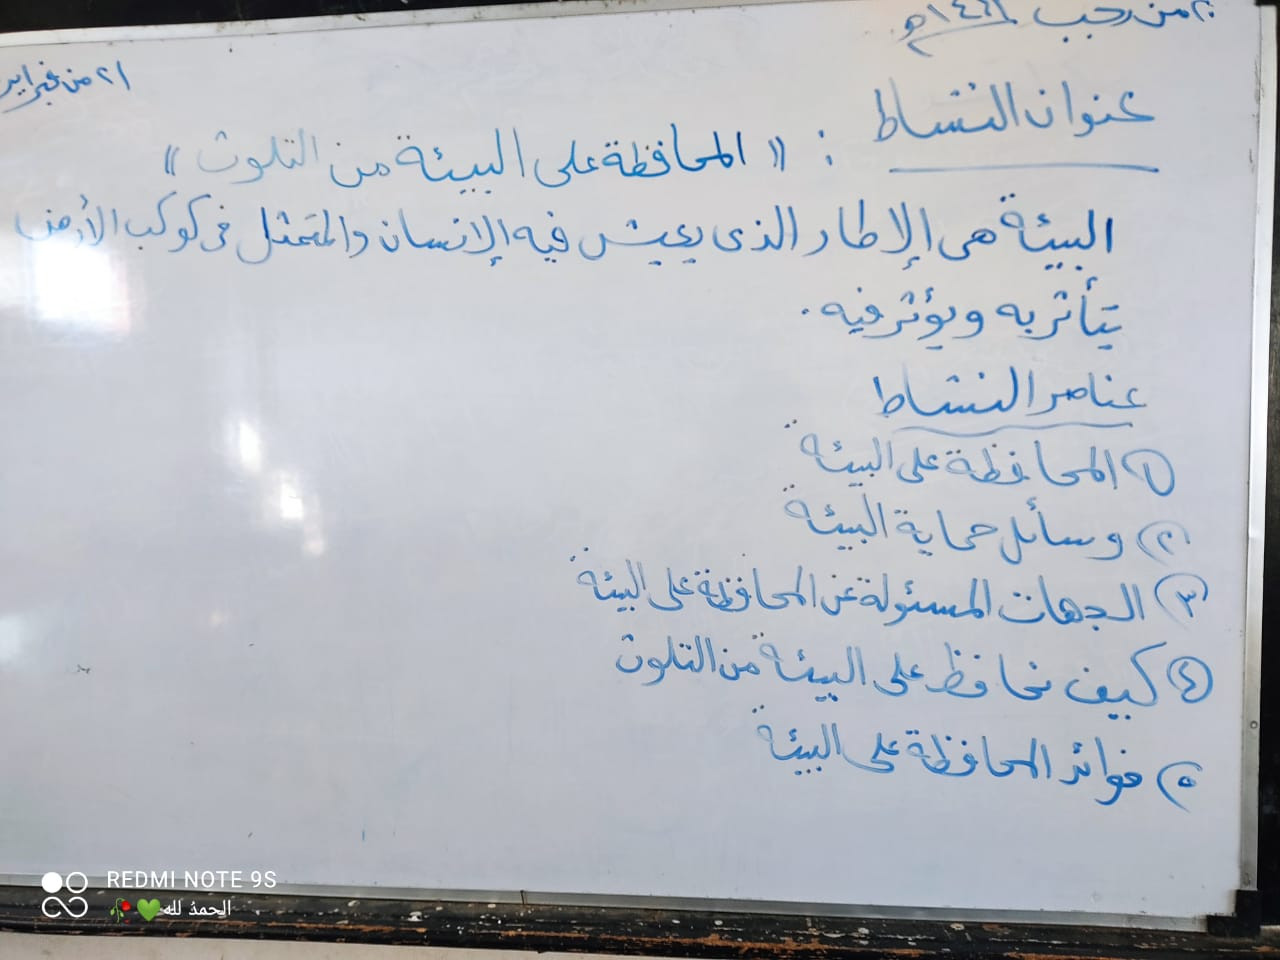 من رجب
٢١ من فبراير
عنوان النشاط : " المحافظة على البيئة من التلوث "
البيئة هى الإطار الذى يعيش فيه الإنسان والمتمثل فى كوكب الأرض
يتأثر به ويؤثر فيه .
عناصر النشاط
١) المحافظة على البيئة
٢) وسائل حماية البيئة
٣) الجهات المسئولة عن المحافظة على البيئة
٤) كيف نحافظ على البيئة من التلوث
٥) فوائد المحافظة على البيئة
REDMI NOTE 9S
الحمدُ لله